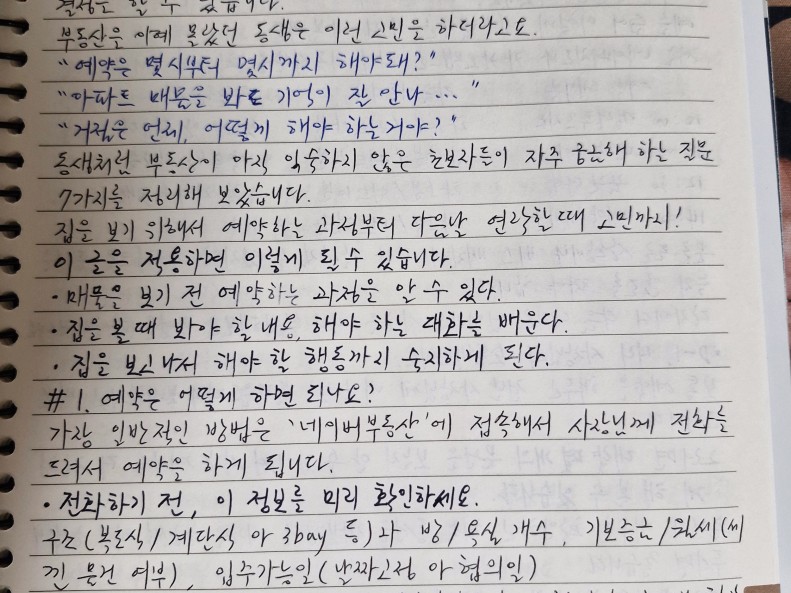 결정도 할 수 있습니다.
부동산을 아예 몰랐던 동생은 이런 고민을 하더라고요.
"예약은 몇시부터 몇시까지 해야돼?"
"아파트 매물을 봐도 기억이 잘 안나..."
"거절은 언제, 어떻게 해야 하는거야?"
동생처럼 부동산이 아직 익숙하지 않은 초보자들이 자주 궁금해 하는 질문
7가지를 정리해 보았습니다.
집을 보기 위해서 예약하는 과정부터 다음날 연락할 때 고민까지!
이 글을 적용하면 이렇게 될 수 있습니다.
· 매물을 보기 전 예약하는 과정을 알 수 있다.
· 집을 볼 때 봐야 할 내용, 해야 하는 대화를 배운다.
· 집을 보고나서 해야 할 행동까지 숙지하게 된다.
# 1. 예약은 어떻게 하면 되나요?
가장 일반적인 방법은 '네이버부동산'에 접속해서 사장님께 전화를
드려서 예약을 하게 됩니다.
· 전화하기 전, 이 정보를 미리 확인하세요.
구조(복도식/계단식 아 3bay 등)과 방/욕실 개수, 기보증금/월세(세
낀 물건 여부), 입주가능일(날짜고정 아 협의일)